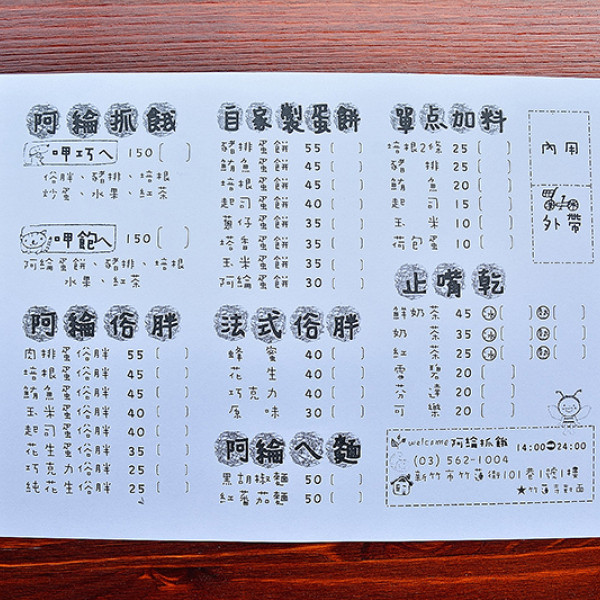 阿綸抓餓
呷巧ㄟ 150 ( )
俗胖、豬排、培根
炒蛋、水果、紅茶
呷飽ㄟ 150 ( )
阿綸蛋餅、豬排、培根
水果、紅茶
阿綸俗胖
肉排蛋俗胖 55 ( )
培根蛋俗胖 45 ( )
鮪魚蛋俗胖 45 ( )
玉米蛋俗胖 40 ( )
起司蛋俗胖 40 ( )
花生蛋俗胖 35 ( )
巧克力俗胖 25 ( )
純花生俗胖 25 ( )
自家製蛋餅
豬排蛋餅 55 ( )
鮪魚蛋餅 45 ( )
培根蛋餅 45 ( )
起司蛋餅 40 ( )
蔥仔蛋餅 35 ( )
塔香蛋餅 35 ( )
玉米蛋餅 35 ( )
阿綸蛋餅 30 ( )
法式俗胖
蜂蜜 40 ( )
花生 40 ( )
巧克力 40 ( )
原味 30 ( )
阿綸ㄟ麵
黑胡椒麵 50 ( )
紅蕃茄麵 50 ( )
單点加料
培根2條 25 ( )
豬排 25 ( )
鮪魚 20 ( )
起司 15 ( )
玉米 10 ( )
荷包蛋 10 ( )
止嘴乾
鮮奶茶 45 冰( ) 熱( )
奶茶 35 冰( ) 熱( )
紅茶 25 冰( ) 熱( )
雪碧 20 ( )
芬達 20 ( )
可樂 20 ( )
內用
外帶
welcome 阿綸抓餓 14:00→24:00
(03) 562-1004
新竹市竹蓮街101巷1號1樓
★竹蓮寺對面